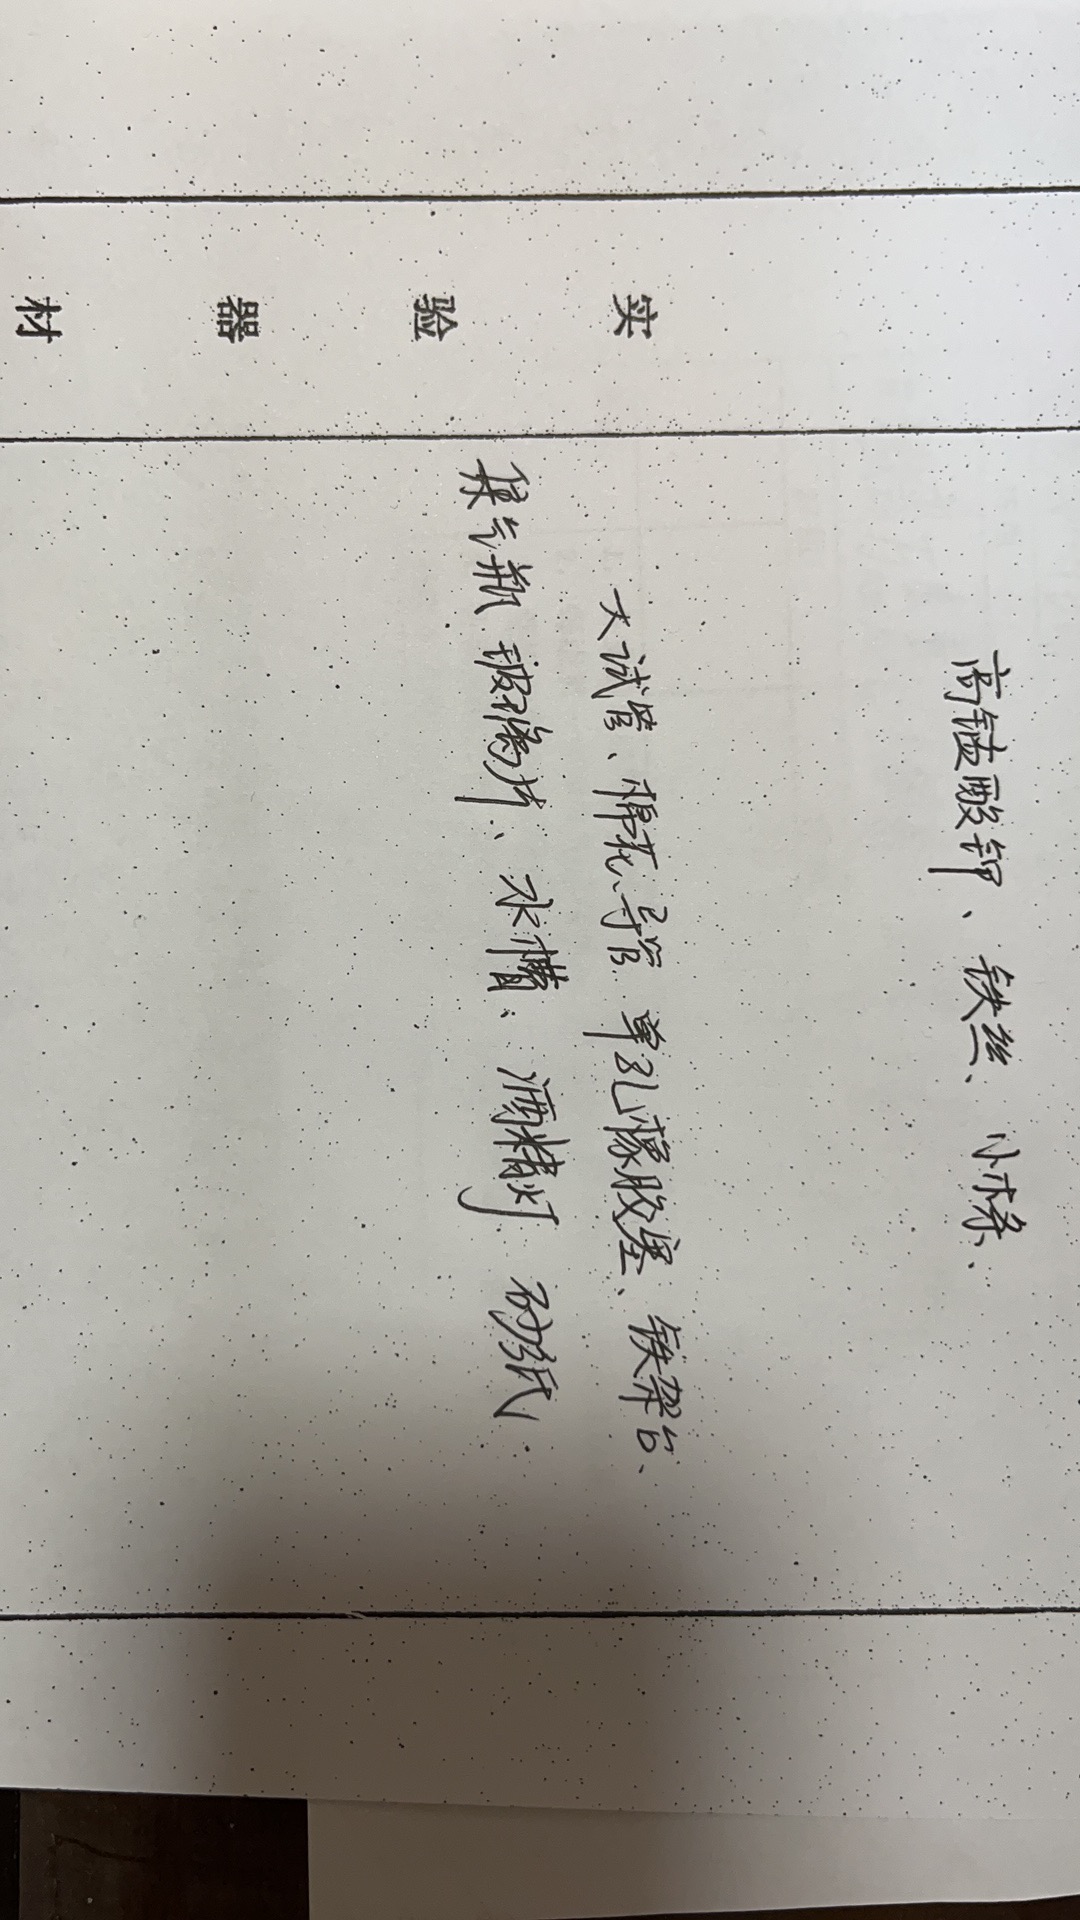 高锰酸钾、铁丝、小木条、
实
大试管、棉花、导管、单孔橡胶塞、铁架台、
验
集气瓶 玻璃片、水槽、酒精灯 砂纸
器
材